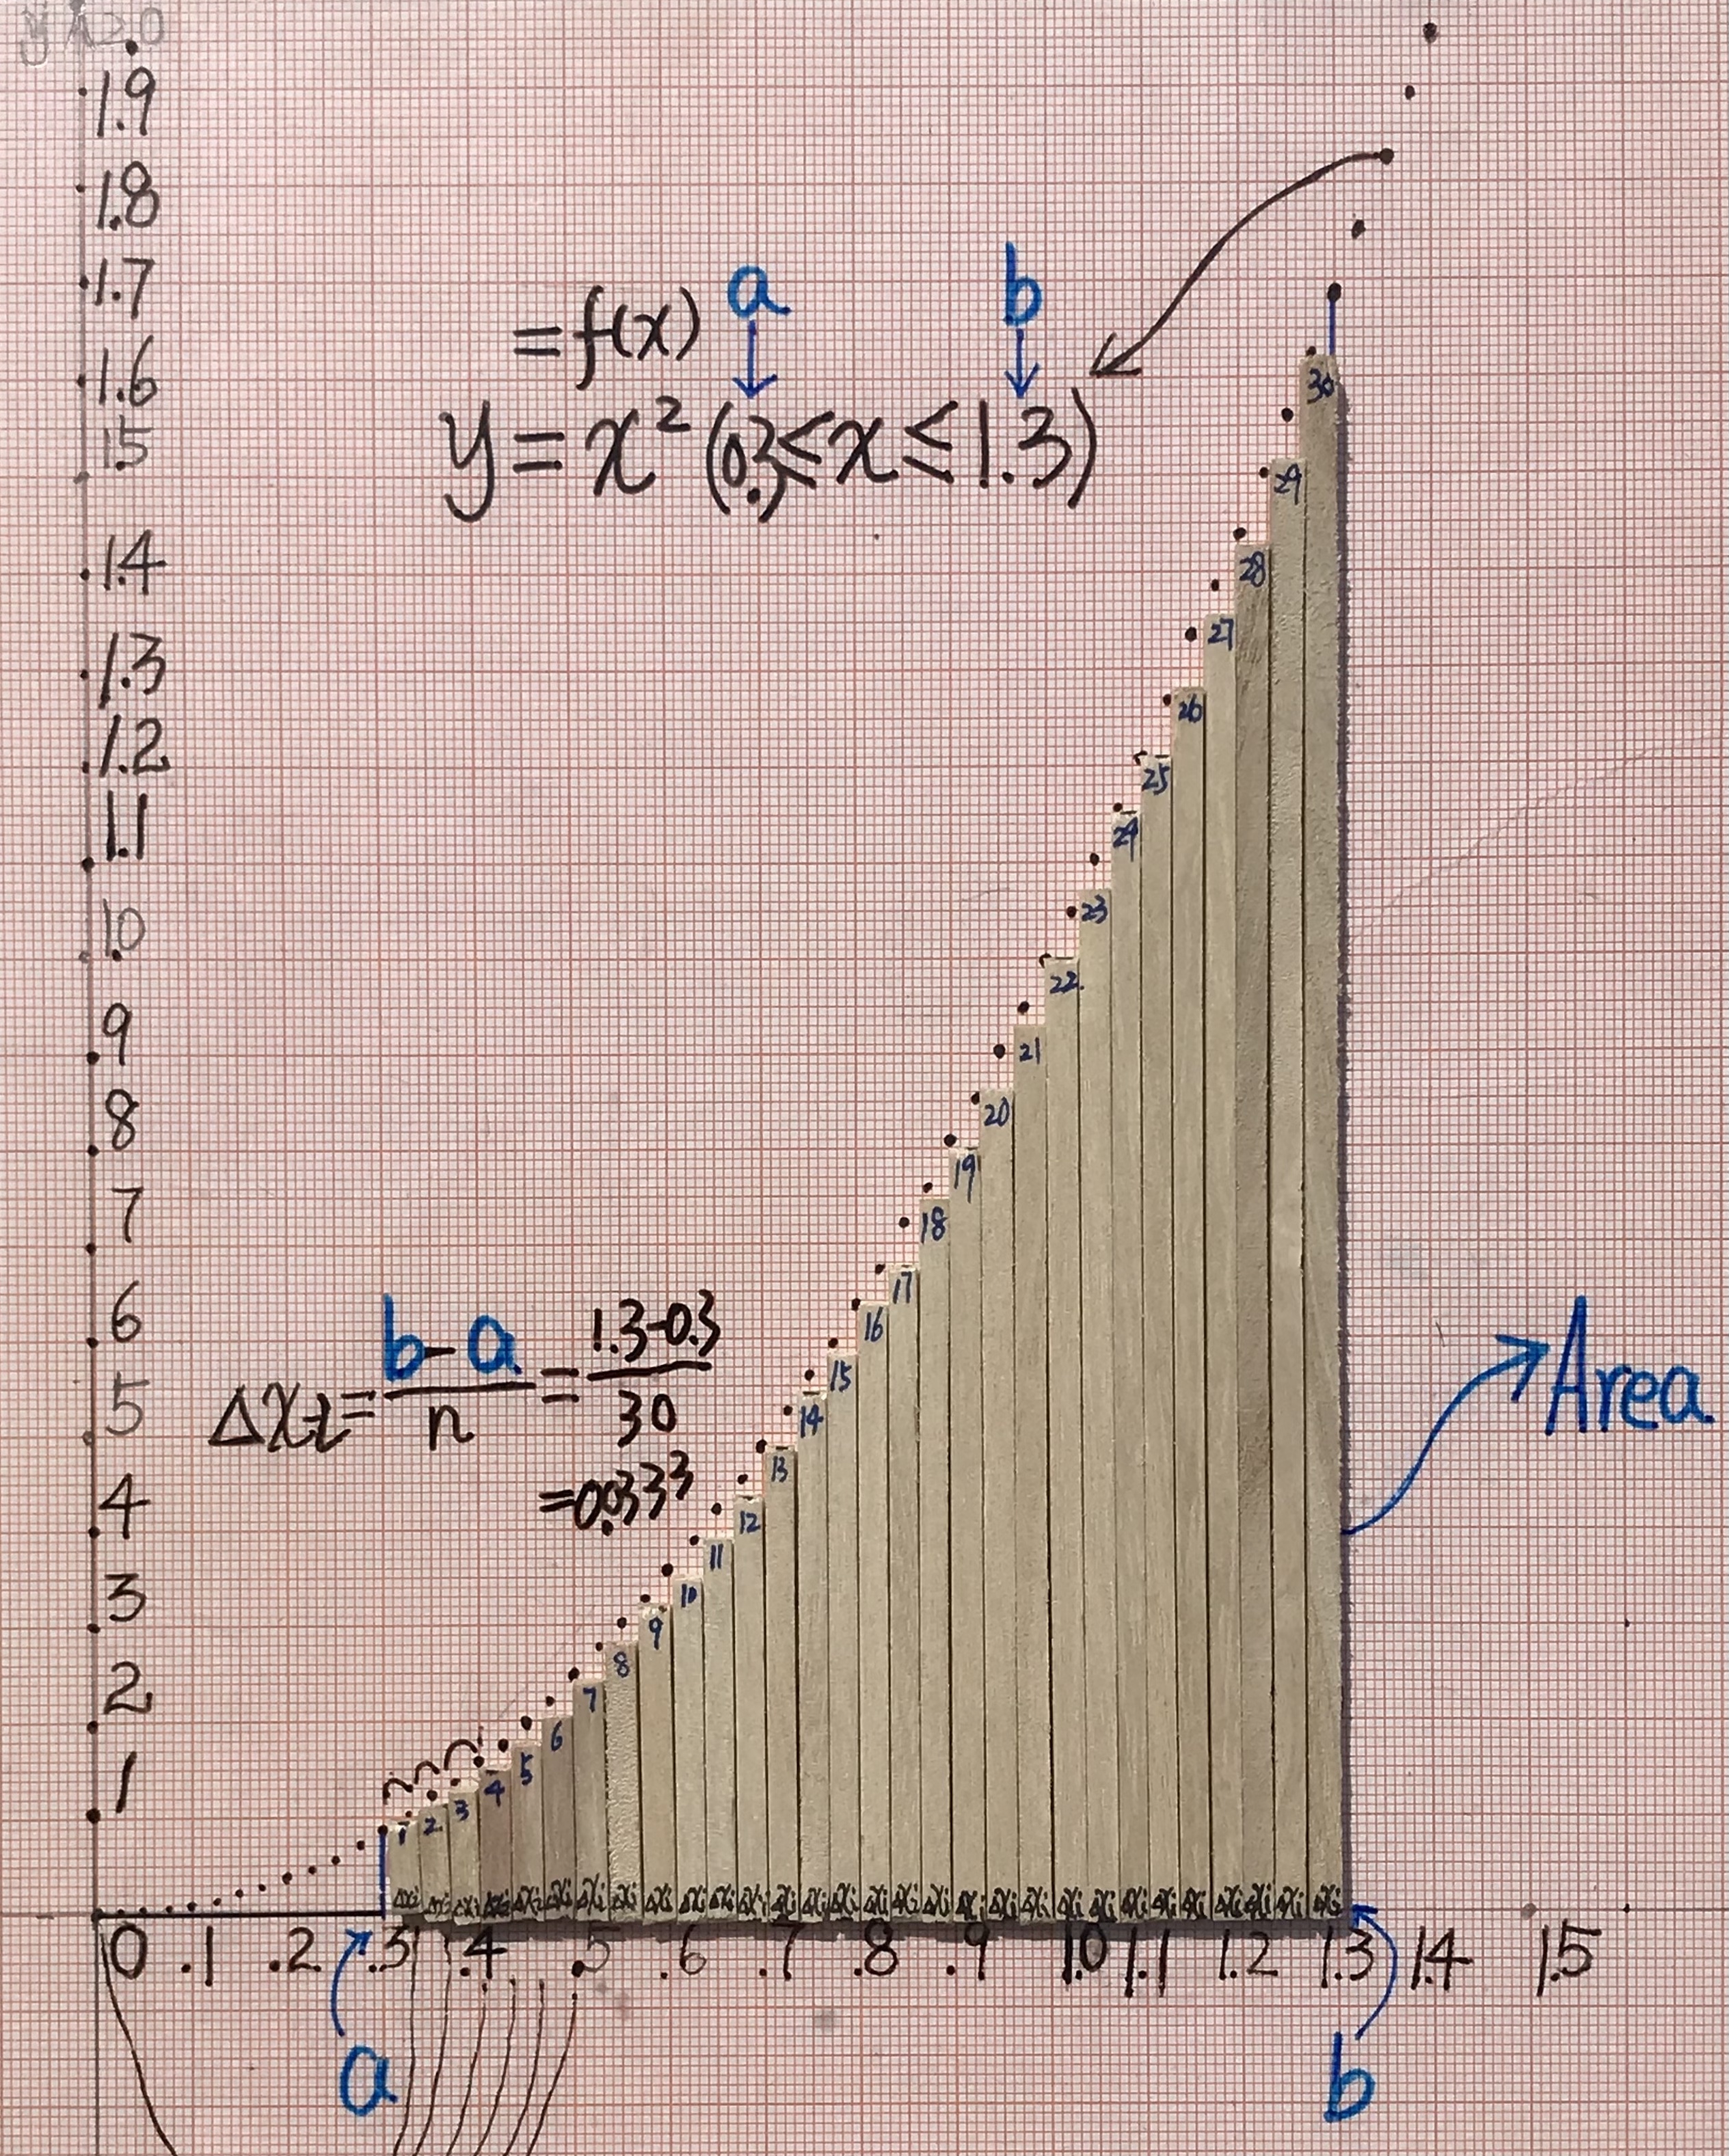 y 2.0
1.9
1.8
1.7
1.6
1.5
1.4
1.3
1.2
1.1
1.0
.9
.8
.7
.6
.5
.4
.3
.2
.1
=f(x) a b
y=x² (0.3≤x≤1.3)
Δxi=b-a/n=1.3-0.3/30
=0.0333
1 2 3 4 5 6 7 8 9 10 11 12 13 14 15 16 17 18 19 20 21 22 23 24 25 26 27 28 29 30
Area
Δxi Δxi Δxi Δxi Δxi Δxi Δxi Δxi Δxi Δxi Δxi Δxi Δxi Δxi Δxi Δxi Δxi Δxi Δxi Δxi Δxi Δxi Δxi Δxi Δxi Δxi Δxi Δxi Δxi Δxi
0 .1 .2 .3 .4 .5 .6 .7 .8 .9 1.0 1.1 1.2 1.3 1.4 1.5
a b